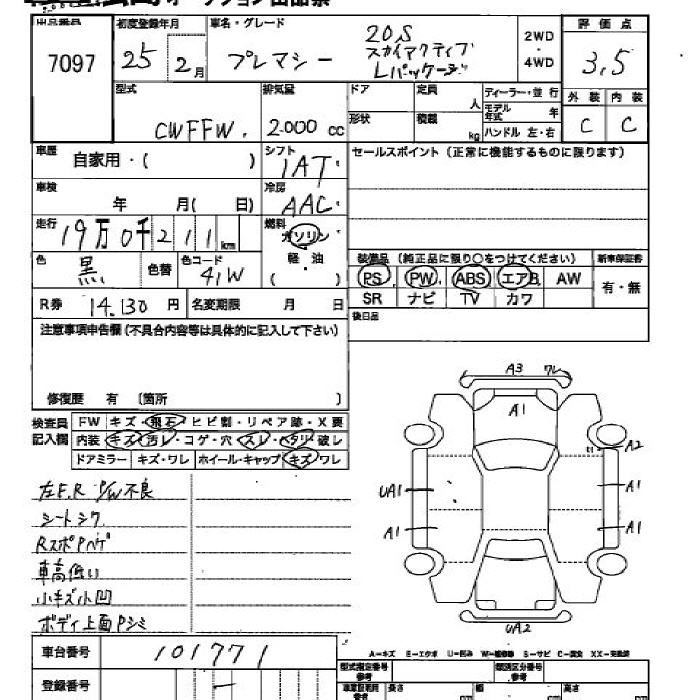 出品番号 初度登録年月 車名・グレード 評価点
7097 25 2月 プレマシー 20S スカイアクティブ Lパッケージ 2WD・4WD 3,5
型式 排気量 ドア 定員 人 ディーラー・並行 外装 内装
CWFFW. 2.000 cc 形状 積載 kg モデル年式 年 ハンドル 左・右 C C
車歴 自家用・( ) シフト 1AT セールスポイント(正常に機能するものに限ります)
車検 年 月( 日) 冷房 AAC
走行 19万0千211km 燃料 ガソリン
色 黒 色替 色コード 41W 軽・油 ( )
装備品(純正品に限り○をつけてください) 新車保証書
PS PW ABS エアB AW 有・無
SR ナビ TV カワ
R券 14.130円 名変期限 月 日
後日品
注意事項申告欄(不具合内容等は具体的に記入して下さい)
修復歴 有 〔箇所 〕
検査員記入欄 FW キズ・飛石・ヒビ割・リペア跡・X要
内装 キズ・汚レ・コゲ・穴・スレ・タリ・破レ
ドアミラー キズ・ワレ ホイール・キャップ キズ・ワレ
A3 ワレ
A1
A2
UA1 A1
A1 A1
UA2
左F.R P/W不良
シートシワ
RスポPハゲ
車高低い
小キズ小凹
ボディ上面Pシミ
A-キズ E-エクボ U-凹み W-補修跡 S-サビ C-腐食 XX-交換済
車台番号 101771
型式指定番号 参考 類別区分番号 参考
登録番号 長さ 幅 高さ